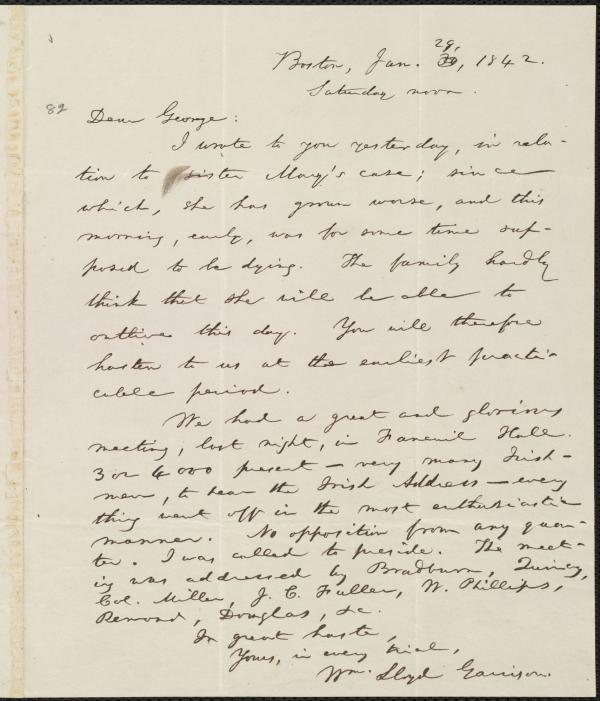 29,
Boston, Jan. 30, 1842.
Saturday noon.
82
Dear George:
I wrote to you yesterday, in rela-
tion to sister Mary's case; since
which, she has grown worse, and this
morning, early, was for some time sup-
posed to be dying. The family hardly
think that she will be able to
outlive this day. You will therefore
hasten to us at the earliest practi-
cable period.
We had a great and glorious
meeting, last night, in Faneuil Hall.
3 or 4000 present — very many Irish-
men, to hear the Irish Address — every
thing went off in the most enthusiastic
manner. No opposition from any quar-
ter. I was called to preside. The meet-
ing was addressed by Bradburn, Quincy,
Col. Miller, J. C. Fuller, W. Phillips,
Remond, Douglas, &c.
In great haste,
Yours, in every trial,
Wm. Lloyd Garrison.